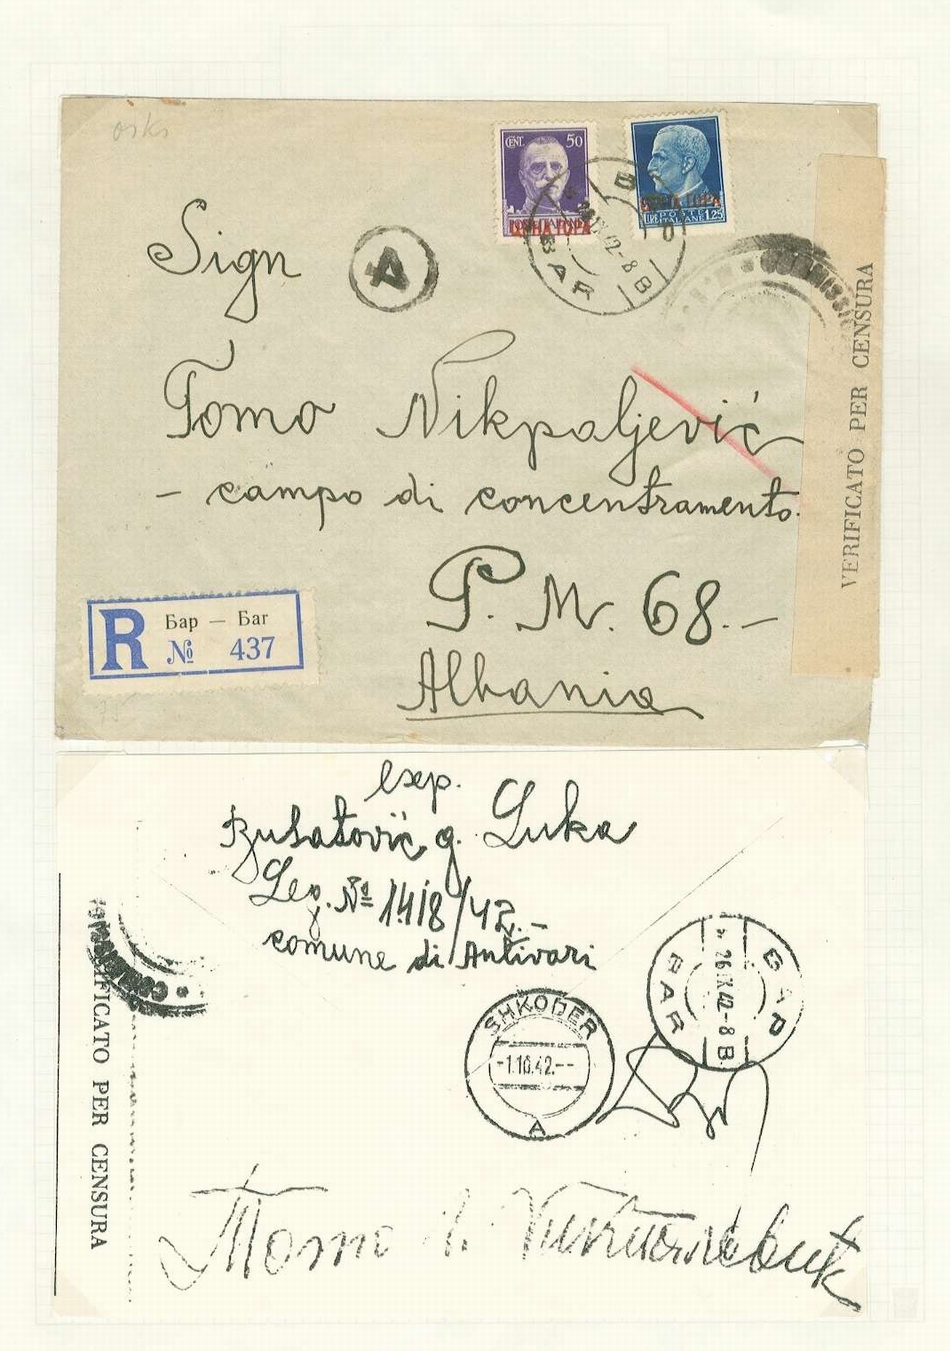 CENT. 50
ЦРНА ГОРА
ЦРНА ГОРА
LIRE POSTE ITALIANE 1.25
BAR
Sign
4
Tomo Nikpaljević
- campo di concentramento.
P. M. 68.-
Albania
VERIFICATO PER CENSURA
R Бар — Bar
№ 437
esp.
g. Luka
Leg. № 1418/42.-
comune di Antivari
БАР
26.IX.42-8
B
BAR
SHKODER
-1.10.42.--
A
VERIFICATO PER CENSURA
Томо